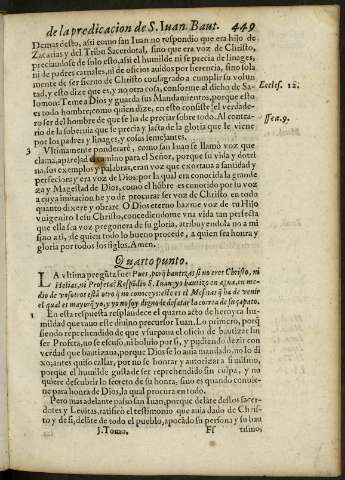 de la predicacion de S. Iuan Baut. 449
Demas desto, assi como san Iuan no respondio que era hijo de
Zacarias y del Tribu Sacerdotal, sino que era voz de Christo,
preciandose de solo esto, assi el humilde ni se precia de linages,
ni de padres carnales, ni de oficios auidos por herencia, sino sola
mente de ser sieruo de Christo consagrado a cumplir su volun
tad, y esto dize que es, y no otra cosa, conforme al dicho de Sa
lomon: Teme a Dios y guarda sus Mandamientos, porque esto
Eccles. 12.
es todo hombre, como quien dize, en esto consiste el verdade-
ro ser del hombre de que se ha de preciar sobre todo. Al contra-
rio de la soberuia que se precia y jacta de la gloria que le viene
por los padres y linages, y cosas semejantes.
3 Vltimamente ponderarè, como san Iuan se llamò voz que
clama, aparejad camino para el Señor, porque su vida y dotri
na, sus exemplos y palabras, eran voz que exortaua a santidad y
perfecion: y era voz de Dios, por la qual era conocida la grande
za y Magestad de Dios, como el hõbre es conocido por su voz
a cuya imitacion he yo de procurar ser voz de Christo en todo
quanto dixere y obrare. O Dios eterno hazme voz de tu Hijo
vnigenito Iesu Christo, concediendome vna vida tan perfecta
que ella sea voz pregonera de su gloria, atribuyendola no a mi
sino a ti, de quien todo lo bueno procede, a quien sea honra y
gloria por todos los siglos, Amen.
Quarto punto.
LA vltima pregũta fue: Pues, porq̃ bautizas si no eres Christo, ni
Helias, ni Profeta? Respõdio S. Iuan: yo bautizo en agua, en me
dio de vosotros està otro q̃ no conoceys: este es el Mesias q̃ ha de venir
el qual es mayor q̃ yo, y yo no soy digno de desatar la correa de su çapato.
En esta respuesta resplandece el quarto acto de heroyca hu-
mildad que tuuo este diuino precursor Iuan. Lo primero, porq̃
siendo reprehendido de que vsurpaua el oficio de bautizar sin
ser Profeta, no se escusò, ni boluio por si, y pudiendo dezir con
verdad que bautizaua, porque Dios se lo auia mandado, no lo di
xo; antes quiso callar, por no se honrar y autorizar a si mismo,
porque el humilde gusta de ser reprehendido sin culpa, y no
quiere descubrir lo secreto de su honra, sino es quando conuie-
ne para honra de Dios, la qual procura en todo.
Pero mas adelante passò san Iuan, porque delãte destos sacer-
dotes y Leuitas, ratificò el testimonio que auia dado de Chris-
to y de si, delãte de todo el pueblo, apocãdo su persona y su bau
j. Tomo. Ff tismo;